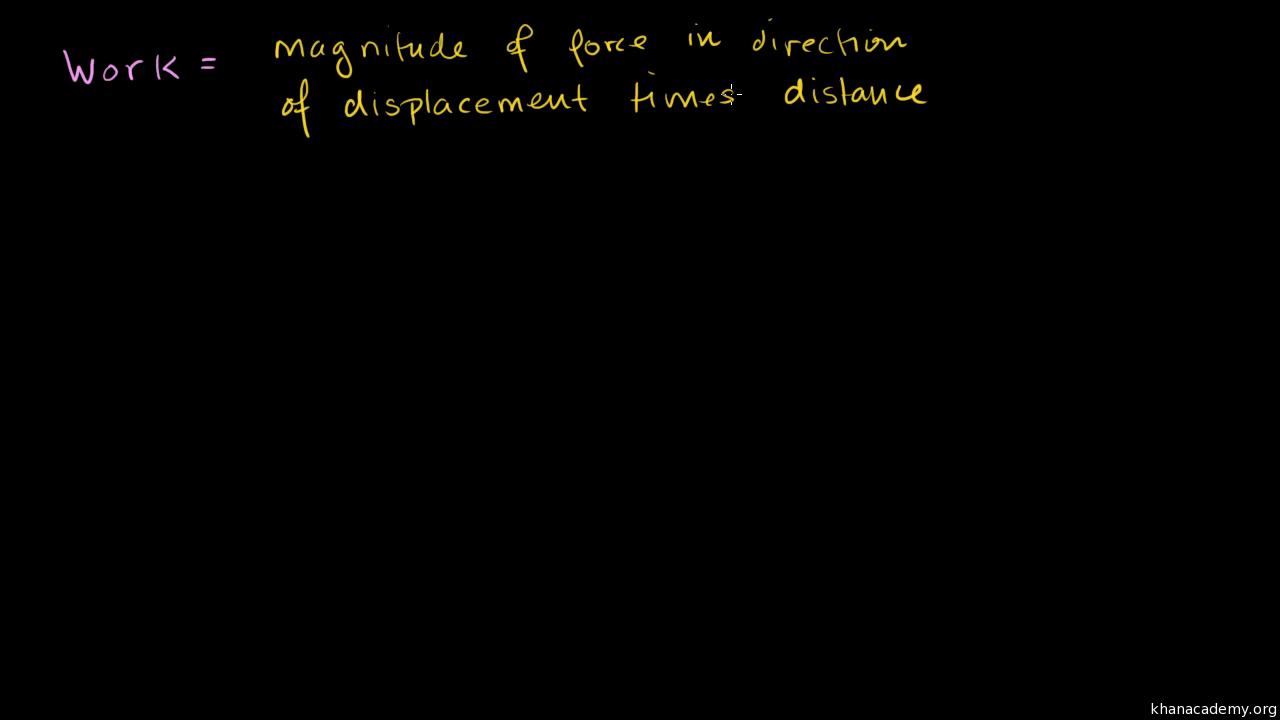 Work = magnitude of force in direction
of displacement times distance
khanacademy.org